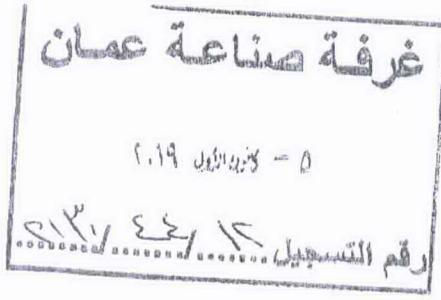 غرفة صناعة عمان
٥ - كانون الأول ٢٠١٩
رقم التسجيل